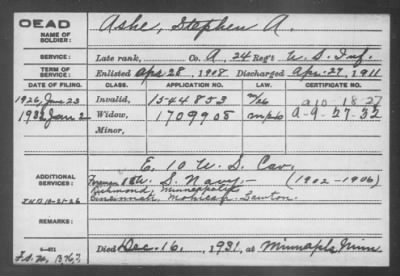 DEAD
NAME OF SOLDIER:
Ashe, Stephen A.
SERVICE:
Late rank, Co. A, 24 Reg't U. S. Inf.
TERM OF SERVICE:
Enlisted Apr 28, 1908 Discharged Apr. 27, 1911
DATE OF FILING. CLASS. APPLICATION NO. LAW. CERTIFICATE NO.
1926, Jan 23 Invalid, 1544853 A10-18-27
1932 Jan 2 Widow, 1709908 A-9-27-32
Minor,
ADDITIONAL SERVICES:
E. 10 U. S. Cav.
U. S. Navy— (1902-1906)
Richmond, Minneapolis
Cincinnati, Mohican, Lawton.
REMARKS:
Died Dec. 16, 1931, at Minneapls Minn